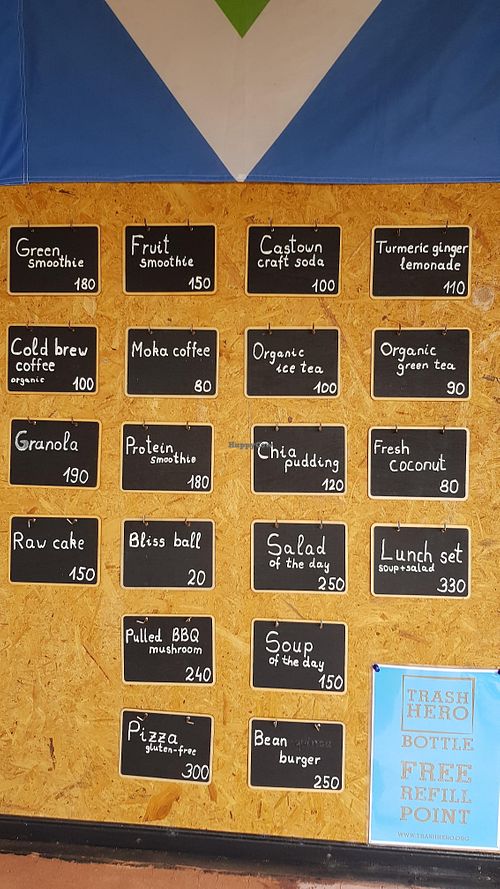 Green
smoothie
180
Fruit
smoothie
150
Castown
craft soda
100
Turmeric ginger
lemonade
110
Cold brew
coffee
organic
100
Moka coffee
80
Organic
ice tea
100
Organic
green tea
90
Granola
190
Protein
smoothie
180
Chia
pudding
120
Fresh
coconut
80
Raw cake
150
Bliss ball
20
Salad
of the day
250
Lunch set
soup+salad
330
Pulled BBQ
mushroom
240
Soup
of the day
150
Pizza
gluten-free
300
Bean
burger
250
TRASH
HERO
BOTTLE
FREE
REFILL
POINT
WWW.TRASHHERO.ORG